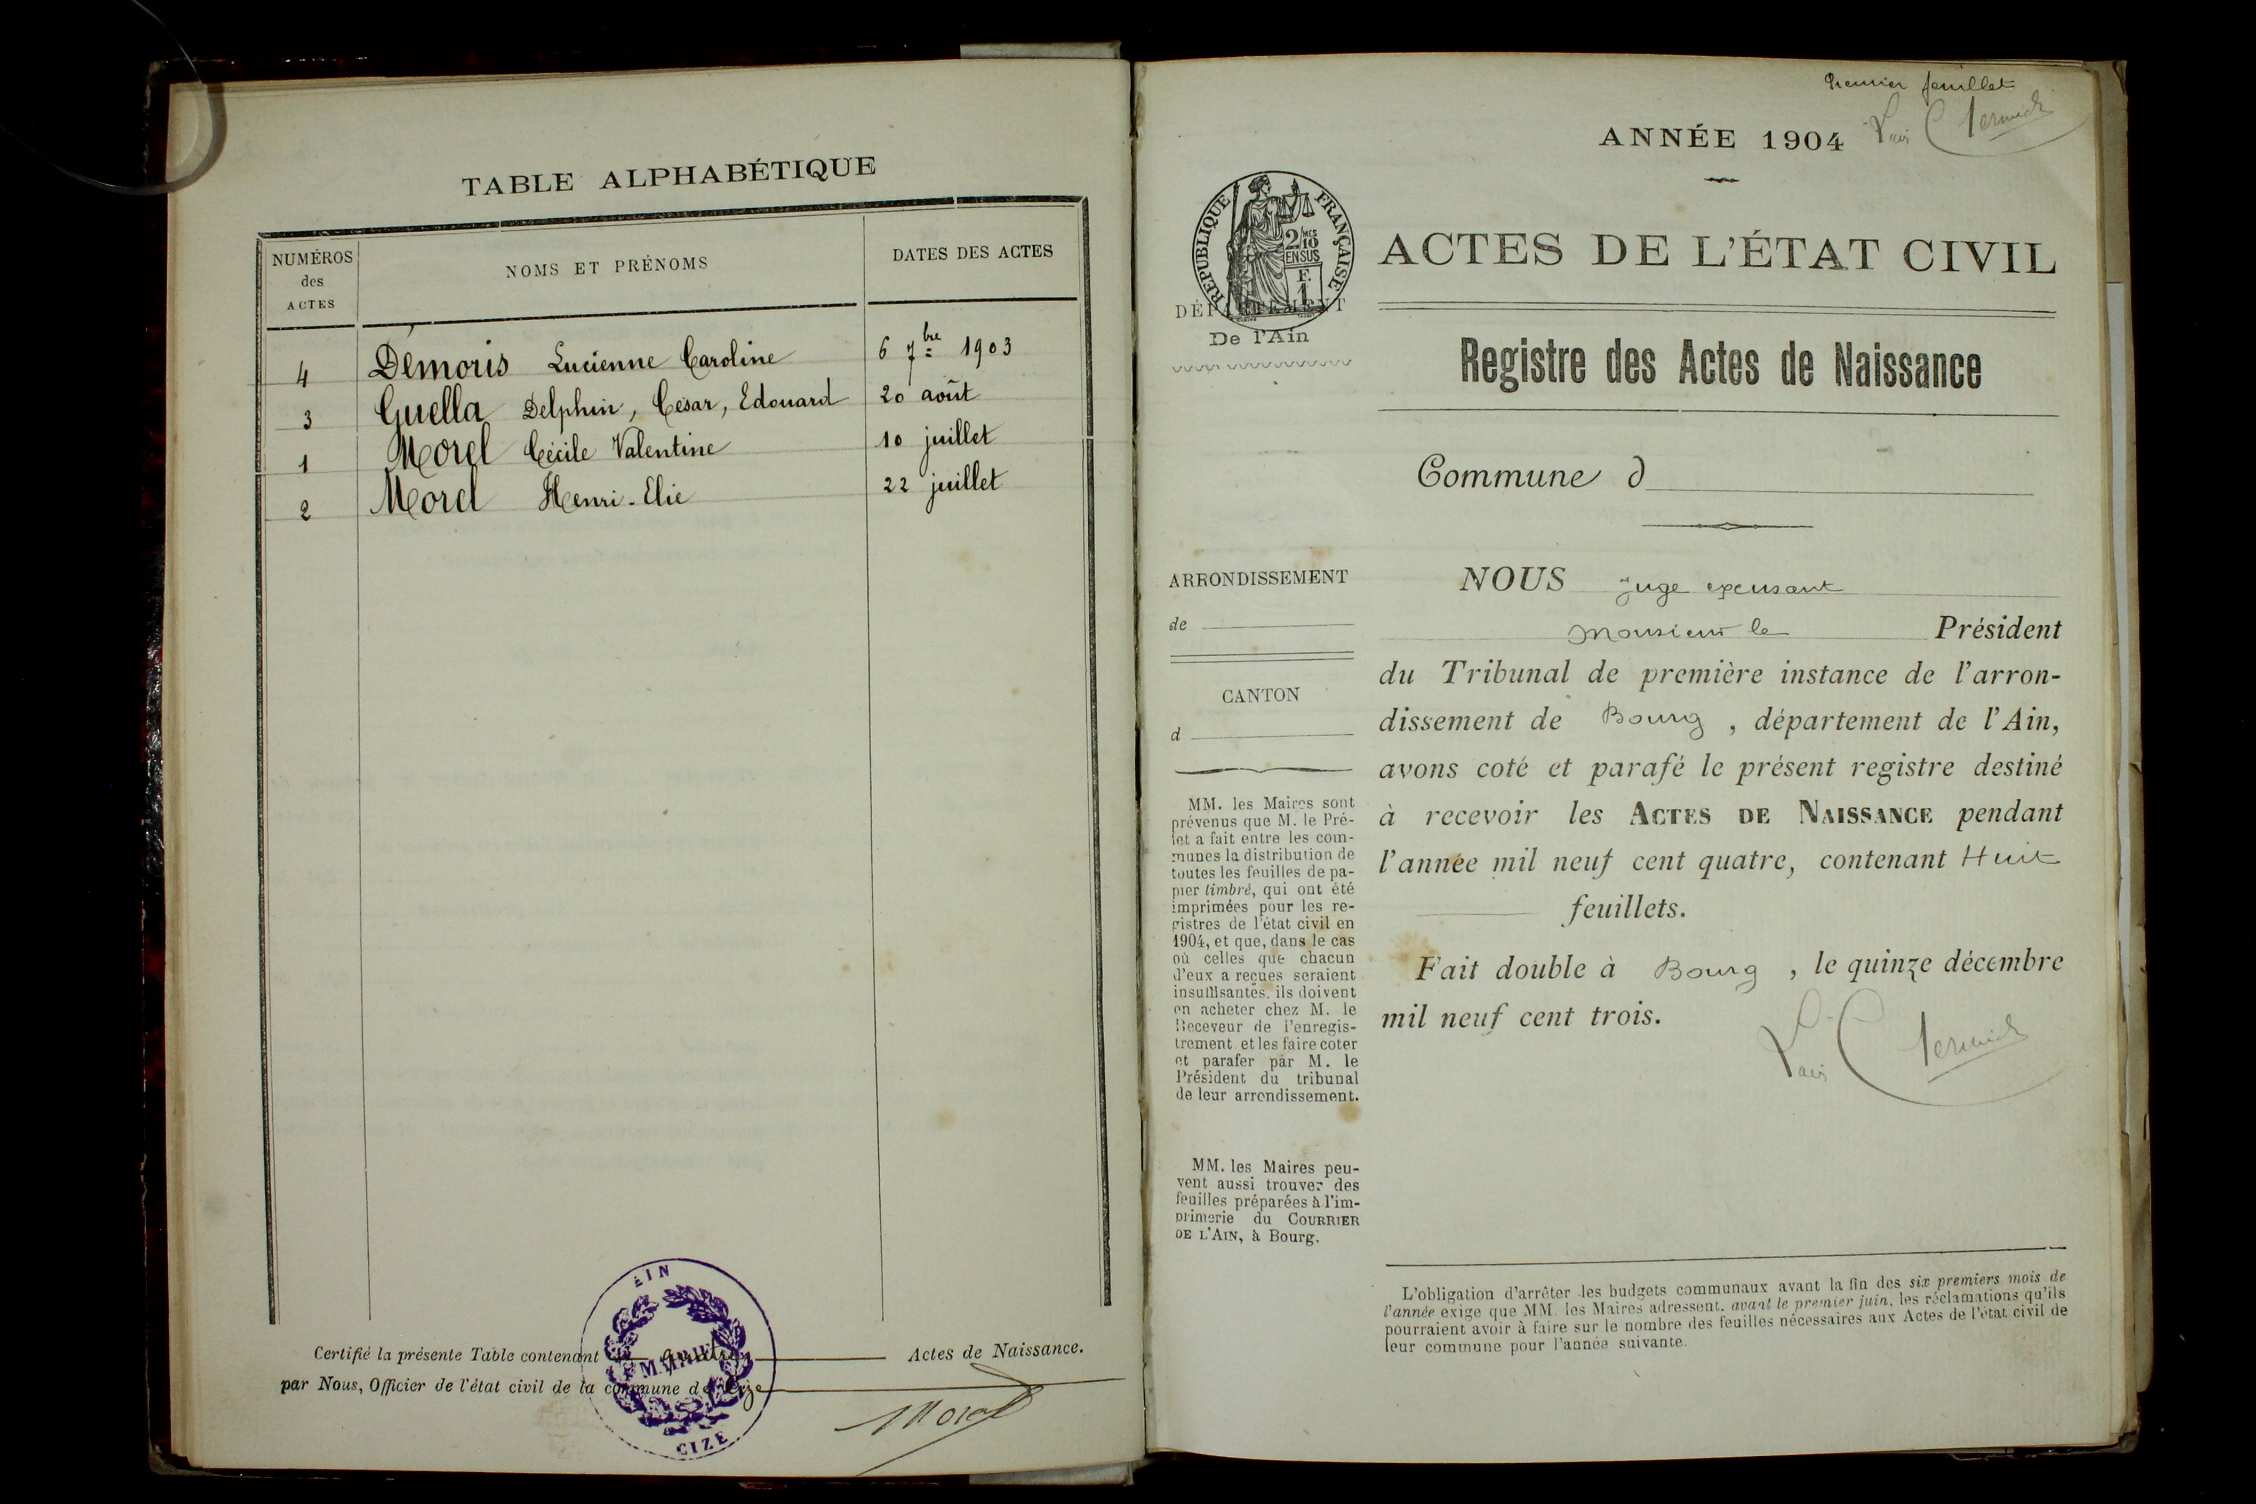 TABLE ALPHABÉTIQUE
NUMÉROS des ACTES
NOMS ET PRÉNOMS
DATES DES ACTES
4 Démoris Lucienne Caroline 6 7bre 1903
3 Guella Delphin, César, Edouard 20 août
1 Morel Cécile Valentine 10 juillet
2 Morel Henri-Elie 22 juillet
Certifié la présente Table contenant quatre Actes de Naissance.
par Nous, Officier de l'état civil de la commune de Cize
Morel
AIN
MAIRIE
CIZE
Premier feuillet
ANNÉE 1904
RÉPUBLIQUE FRANÇAISE
2/10 MES
EN SUS
F.
1
ACTES DE L'ÉTAT CIVIL
DÉPARTEMENT
De l'Ain
Registre des Actes de Naissance
Commune d
ARRONDISSEMENT
de
CANTON
d
MM. les Maires sont
prévenus que M. le Pré-
fet a fait entre les com-
munes la distribution de
toutes les feuilles de pa-
pier timbré, qui ont été
imprimées pour les re-
gistres de l'état civil en
1904, et que, dans le cas
où celles que chacun
d'eux a reçues seraient
insuffisantes, ils doivent
en acheter chez M. le
Receveur de l'enregis-
trement et les faire coter
et parafer par M. le
Président du tribunal
de leur arrondissement.
MM. les Maires peu-
vent aussi trouver des
feuilles préparées à l'im-
primerie du COURRIER
DE L'AIN, à Bourg.
NOUS juge excusant
Monsieur le Président
du Tribunal de première instance de l'arron-
dissement de Bourg, département de l'Ain,
avons coté et parafé le présent registre destiné
à recevoir les ACTES DE NAISSANCE pendant
l'année mil neuf cent quatre, contenant Huit
feuillets.
Fait double à Bourg, le quinze décembre
mil neuf cent trois.
L'obligation d'arrêter les budgets communaux avant la fin des six premiers mois de
l'année exige que MM. les Maires adressent, avant le premier juin, les réclamations qu'ils
pourraient avoir à faire sur le nombre des feuilles nécessaires aux Actes de l'état civil de
leur commune pour l'année suivante.